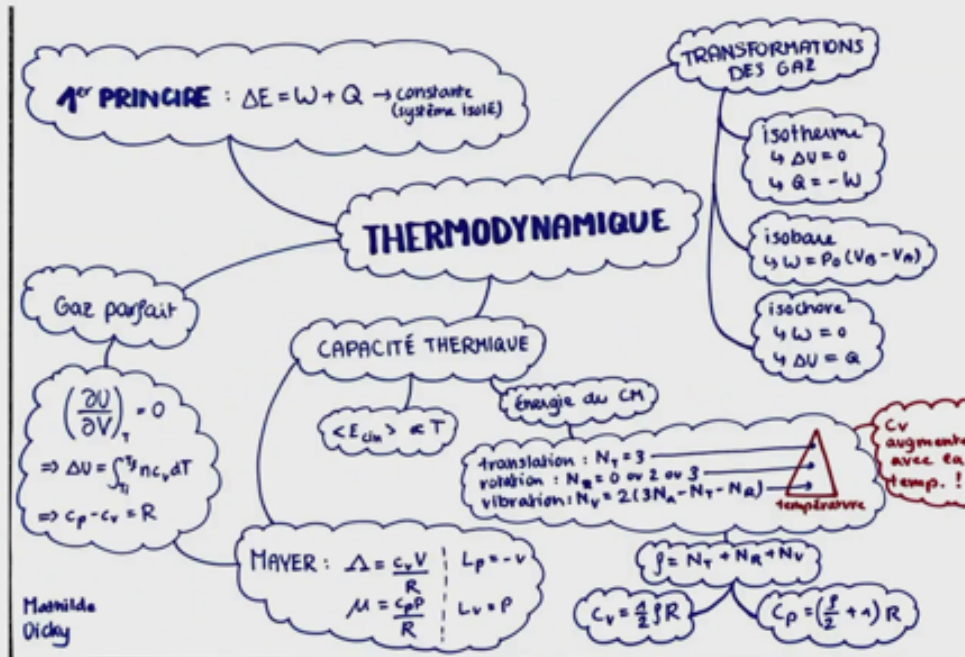 1er PRINCIPE : ΔE = W + Q → constante
(système isolé)
TRANSFORMATIONS
DES GAZ
isotherme
↳ ΔU = 0
↳ Q = -W
isobare
↳ W = P₀ (V_B - V_A)
isochore
↳ W = 0
↳ ΔU = Q
THERMODYNAMIQUE
Gaz parfait
(∂U/∂V)_T = 0
⇒ ΔU = ∫_{Ti}^{Tf} n c_v dT
⇒ c_p - c_v = R
CAPACITÉ THERMIQUE
<E_cin> ∝ T
Énergie du CM
translation : N_T = 3
rotation : N_R = 0 ou 2 ou 3
vibration : N_V = 2(3N_A - N_T - N_R)
température
Cv
augmente
avec la
temp. !
MAYER : Λ = c_v V / R | L_p = -v
μ = c_p P / R | L_v = P
f = N_T + N_R + N_V
C_v = 1/2 f R
C_p = (f/2 + 1) R
Mathilde
Dicky